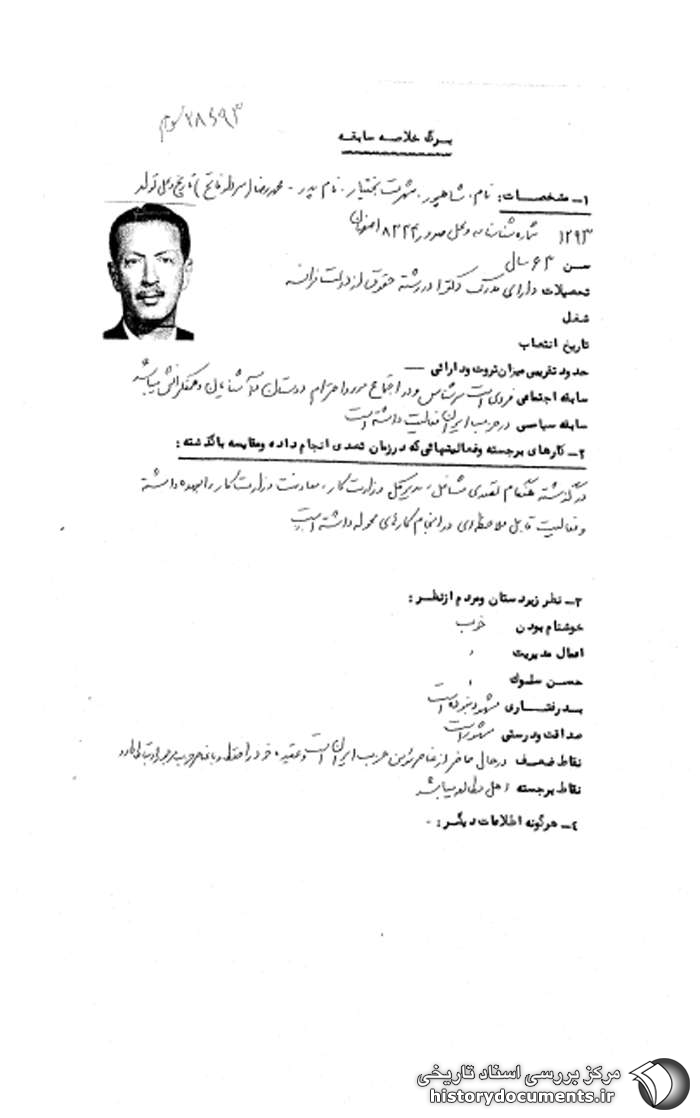 ۲۸۶۹۳
برگ خلاصه سابقه
۱ـ مشخصات: نام، شاهپور، شهرت بختیار، نام پدر - محمدرضا (سردار فاتح) تاریخ و محل تولد
۱۲۹۳ شماره شناسنامه و محل صدور ۸۲۲۴ اصفهان
سن ۶۳ سال
تحصیلات دارای مدرک دکترا در رشته حقوق از دولت فرانسه
شغل
تاریخ انتصاب
حدود تقریبی میزان ثروت و دارائی —
سابقه اجتماعی فردی است سرشناس و در اجتماع مورد احترام دوستان و آشنایان و همفکرانش میباشد
سابقه سیاسی در حزب ایران فعالیت داشته است
۲ـ کارهای برجسته و فعالیتهائی که در زمان تصدی انجام داده و مقایسه با گذشته:
در گذشته هنگام تصدی مشاغل، مدیرکل وزارت کار، معاونت وزارت کار را بعهده داشته
و فعالیت قابل ملاحظه‌ای در انجام کارهای محوله داشته است
۳ـ نظر زیردستان و مردم از نظر:
خوشنام بودن خوب
اعمال مدیریت "
حسن سلوک "
بدرفتاری مشهود نبوده است
صداقت و درستی مشهور است
نقاط ضعف در حال حاضر از عناصر مؤمن حزب ایران است و عقیده خود را حفظ و با عناصر حزب مزبور ارتباط دارد
نقاط برجسته اهل مطالعه میباشد
۴ـ هرگونه اطلاعات دیگر: -
مرکز بررسی اسناد تاریخی
historydocuments.ir